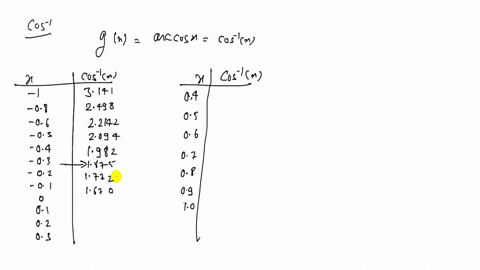 Cos⁻¹
g(x) = arccosx = cos⁻¹(x)
x Cos⁻¹(x)
-1 3.141
-0.8 2.498
-0.6 2.2142
-0.5 2.094
-0.4 1.982
-0.3 1.875
-0.2 1.772
-0.1 1.670
0
0.1
0.2
0.3
x Cos⁻¹(x)
0.4
0.5
0.6
0.7
0.8
0.9
1.0